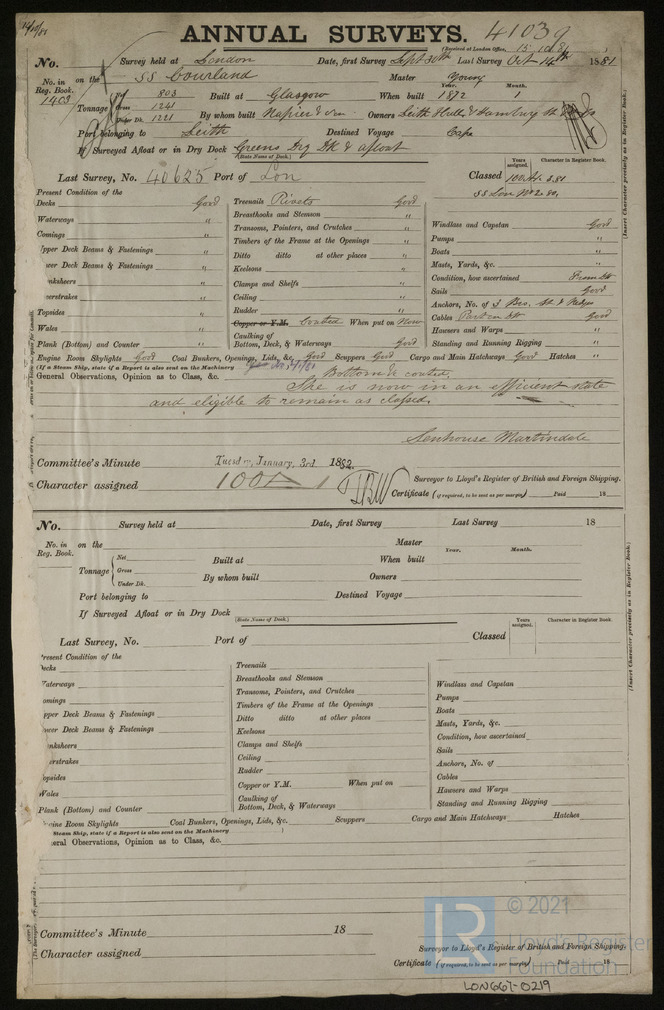 ANNUAL SURVEYS. 41039
(Received at London Office, 15.10.81
No. Survey held at London Date, first Survey Sept 30th Last Survey Oct 14th 1881
No. in Reg. Book. 1903 on the SS Courland Master Young
Tonnage Net 803 Built at Glasgow When built Year. 1872 Month. 1
Gross 1241
Under Dk. 1221 By whom built Napier & Owners Leith Hull & Hamburg
Port belonging to Leith Destined Voyage
If Surveyed Afloat or in Dry Dock Greens Dry Dk & afloat
(State Name of Dock.)
Last Survey, No. 40625 Port of Lon Classed Years assigned. 100A1 Character in Register Book.
SS Lon No2
(Insert Character precisely as in Register Book.)
Present Condition of the
Decks Good
Waterways "
Comings "
pper Deck Beams & Fastenings "
wer Deck Beams & Fastenings "
nksheers "
verstrakes "
Topsides "
Wales "
Plank (Bottom) and Counter "
Treenails Rivets Good
Breasthooks and Stemson "
Transoms, Pointers, and Crutches "
Timbers of the Frame at the Openings "
Ditto ditto at other places "
Keelsons "
Clamps and Shelfs "
Ceiling "
Rudder "
Copper or Y.M. Coated When put on Now
Caulking of
Bottom, Deck, & Waterways Good
Windlass and Capstan Good
Pumps "
Boats "
Masts, Yards, &c. "
Condition, how ascertained From
Sails Good
Anchors, No. of 3
Cables Part Good
Hawsers and Warps "
Standing and Running Rigging "
Engine Room Skylights Good Coal Bunkers, Openings, Lids, &c. Good Scuppers Good Cargo and Main Hatchways Good Hatches "
(If a Steam Ship, state if a Report is also sent on the Machinery
General Observations, Opinion as to Class, &c. Bottom & coated.
She is now in an efficient state
and eligible to remain as classed.
Senhouse Martindale
Committee's Minute Tuesday, January, 3rd. 1882
Character assigned 100A 1
Surveyor to Lloyd's Register of British and Foreign Shipping.
Certificate (if required, to be sent as per margin) Paid 18
No. Survey held at Date, first Survey Last Survey 18
No. in Reg. Book. on the Master
Tonnage Net Built at When built Year. Month.
Gross
Under Dk. By whom built Owners
Port belonging to Destined Voyage
If Surveyed Afloat or in Dry Dock
(State Name of Dock.)
Last Survey, No. Port of Classed Years assigned. Character in Register Book.
(Insert Character precisely as in Register Book.)
resent Condition of the
ecks
aterways
omings
pper Deck Beams & Fastenings
wer Deck Beams & Fastenings
nksheers
erstrakes
opsides
Wales
Plank (Bottom) and Counter
Treenails
Breasthooks and Stemson
Transoms, Pointers, and Crutches
Timbers of the Frame at the Openings
Ditto ditto at other places
Keelsons
Clamps and Shelfs
Ceiling
Rudder
Copper or Y.M. When put on
Caulking of
Bottom, Deck, & Waterways
Windlass and Capstan
Pumps
Boats
Masts, Yards, &c.
Condition, how ascertained
Sails
Anchors, No. of
Cables
Hawsers and Warps
Standing and Running Rigging
ine Room Skylights Coal Bunkers, Openings, Lids, &c. Scuppers Cargo and Main Hatchways Hatches
Steam Ship, state if a Report is also sent on the Machinery
eral Observations, Opinion as to Class, &c.
Committee's Minute 18
Character assigned
Surveyor to Lloyd's Register of British and Foreign Shipping.
Certificate (if required, to be sent as per margin) Paid 18
LR © 2021
Lloyd's Register
Foundation
LON667-0219